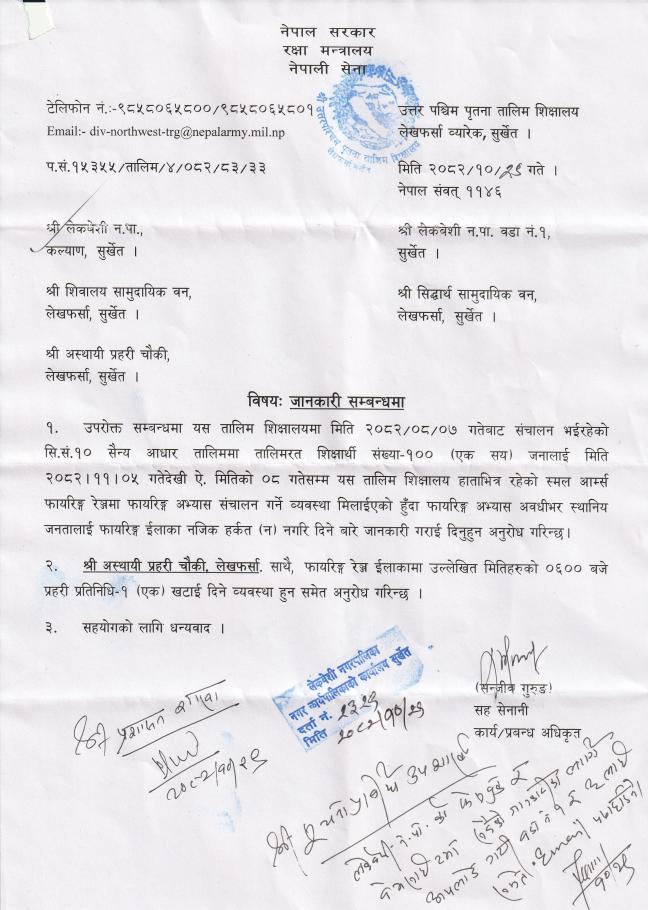 नेपाल सरकार
रक्षा मन्त्रालय
नेपाली सेना
टेलिफोन नं.:-९८५८०६५८००/९८५८०६५८०१
उत्तर पश्चिम पृतना तालिम शिक्षालय
Email:- div-northwest-trg@nepalarmy.mil.np
लेखफर्सा ब्यारेक, सुर्खेत ।
प.सं.१५३५५/तालिम/४/०८२/८३/३३
मिति २०८२/१०/२९ गते ।
नेपाल संवत् ११४६
श्री लेकबेशी न.पा.,
कल्याण, सुर्खेत ।
श्री लेकबेशी न.पा. वडा नं.१,
सुर्खेत ।
श्री शिवालय सामुदायिक वन,
लेखफर्सा, सुर्खेत ।
श्री सिद्धार्थ सामुदायिक वन,
लेखफर्सा, सुर्खेत ।
श्री अस्थायी प्रहरी चौकी,
लेखफर्सा, सुर्खेत ।
विषयः जानकारी सम्बन्धमा
१. उपरोक्त सम्बन्धमा यस तालिम शिक्षालयमा मिति २०८२/०८/०७ गतेबाट संचालन भईरहेको
सि.सं.१० सैन्य आधार तालिममा तालिमरत शिक्षार्थी संख्या-१०० (एक सय) जनालाई मिति
२०८२।११।०५ गतेदेखी ऐ. मितिको ०८ गतेसम्म यस तालिम शिक्षालय हाताभित्र रहेको स्मल आर्म्स
फायरिङ्ग रेञ्जमा फायरिङ्ग अभ्यास संचालन गर्ने व्यवस्था मिलाईएको हुँदा फायरिङ्ग अभ्यास अवधीभर स्थानिय
जनतालाई फायरिङ्ग ईलाका नजिक हर्कत (न) नगरि दिने बारे जानकारी गराई दिनुहुन अनुरोध गरिन्छ।
२. श्री अस्थायी प्रहरी चौकी, लेखफर्सा. साथै, फायरिङ्ग रेञ्ज ईलाकामा उल्लेखित मितिहरुको ०६०० बजे
प्रहरी प्रतिनिधि-१ (एक) खटाई दिने व्यवस्था हुन समेत अनुरोध गरिन्छ ।
३. सहयोगको लागि धन्यवाद ।
लेकबेशी नगरपालिका
नगर कार्यपालिकाको कार्यालय सुर्खेत
दर्ता नं. २३२९
मिति २०८२/१०/२९
(सन्जीव गुरुङ)
सह सेनानी
कार्य/प्रबन्ध अधिकृत
श्री प्रशासन शाखा
२०८२/१०/२९